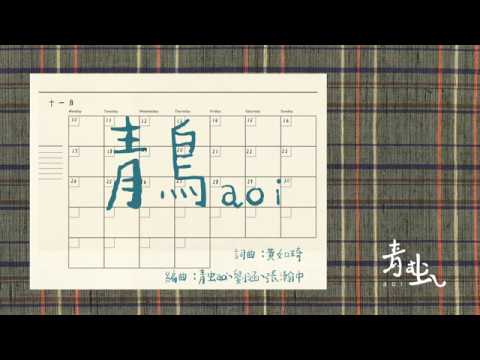 十一月
Monday Tuesday Wednesday Thursday Friday Saturday Sunday
10 11 12 13 14 15 16
17 18 19 20 21 22 23
24 25 26 27 28 29 30
青鳥 aoi
詞曲：黃如琦
編曲：青虫aoi、劉涵、張瀚中
青虫
aoi